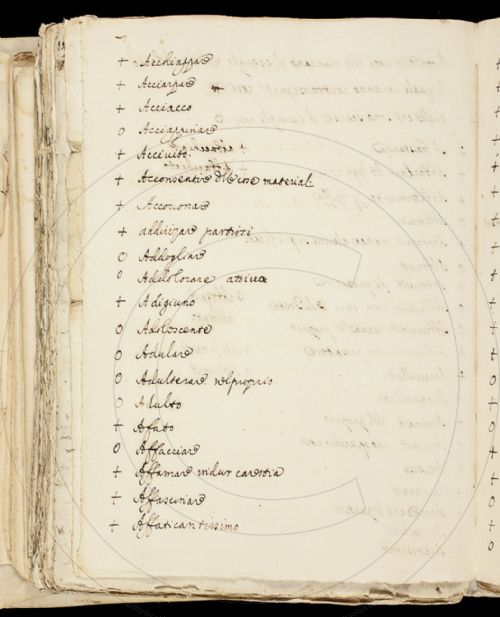 + Acchiappare
+ Acciarpare +
+ Acciacco
o Acciappinare
+ Acciuito
+ Acconsentire di cose material
+ Accoronare
+ addirizare partiri
o Addogliare
o Addolorare attivo
+ Adigiuno
o Adoloscente
o Adulare
o Adulterare nel proprio
o Adulto
+ Afato
o Affacciare
+ Affamare indur carestia
+ Affascinare
+ Affaticantissimo